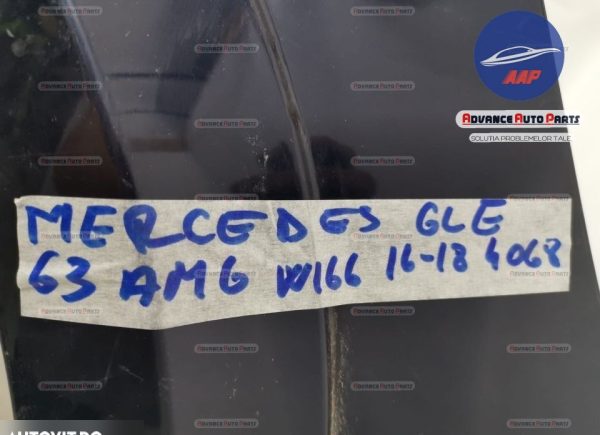 AAP
ADVANCE AUTO PARTS
SOLUTIA PROBLEMELOR TALE
MERCEDES GLE
63 AMG W166 16-18 4068
AUTOVIT.RO